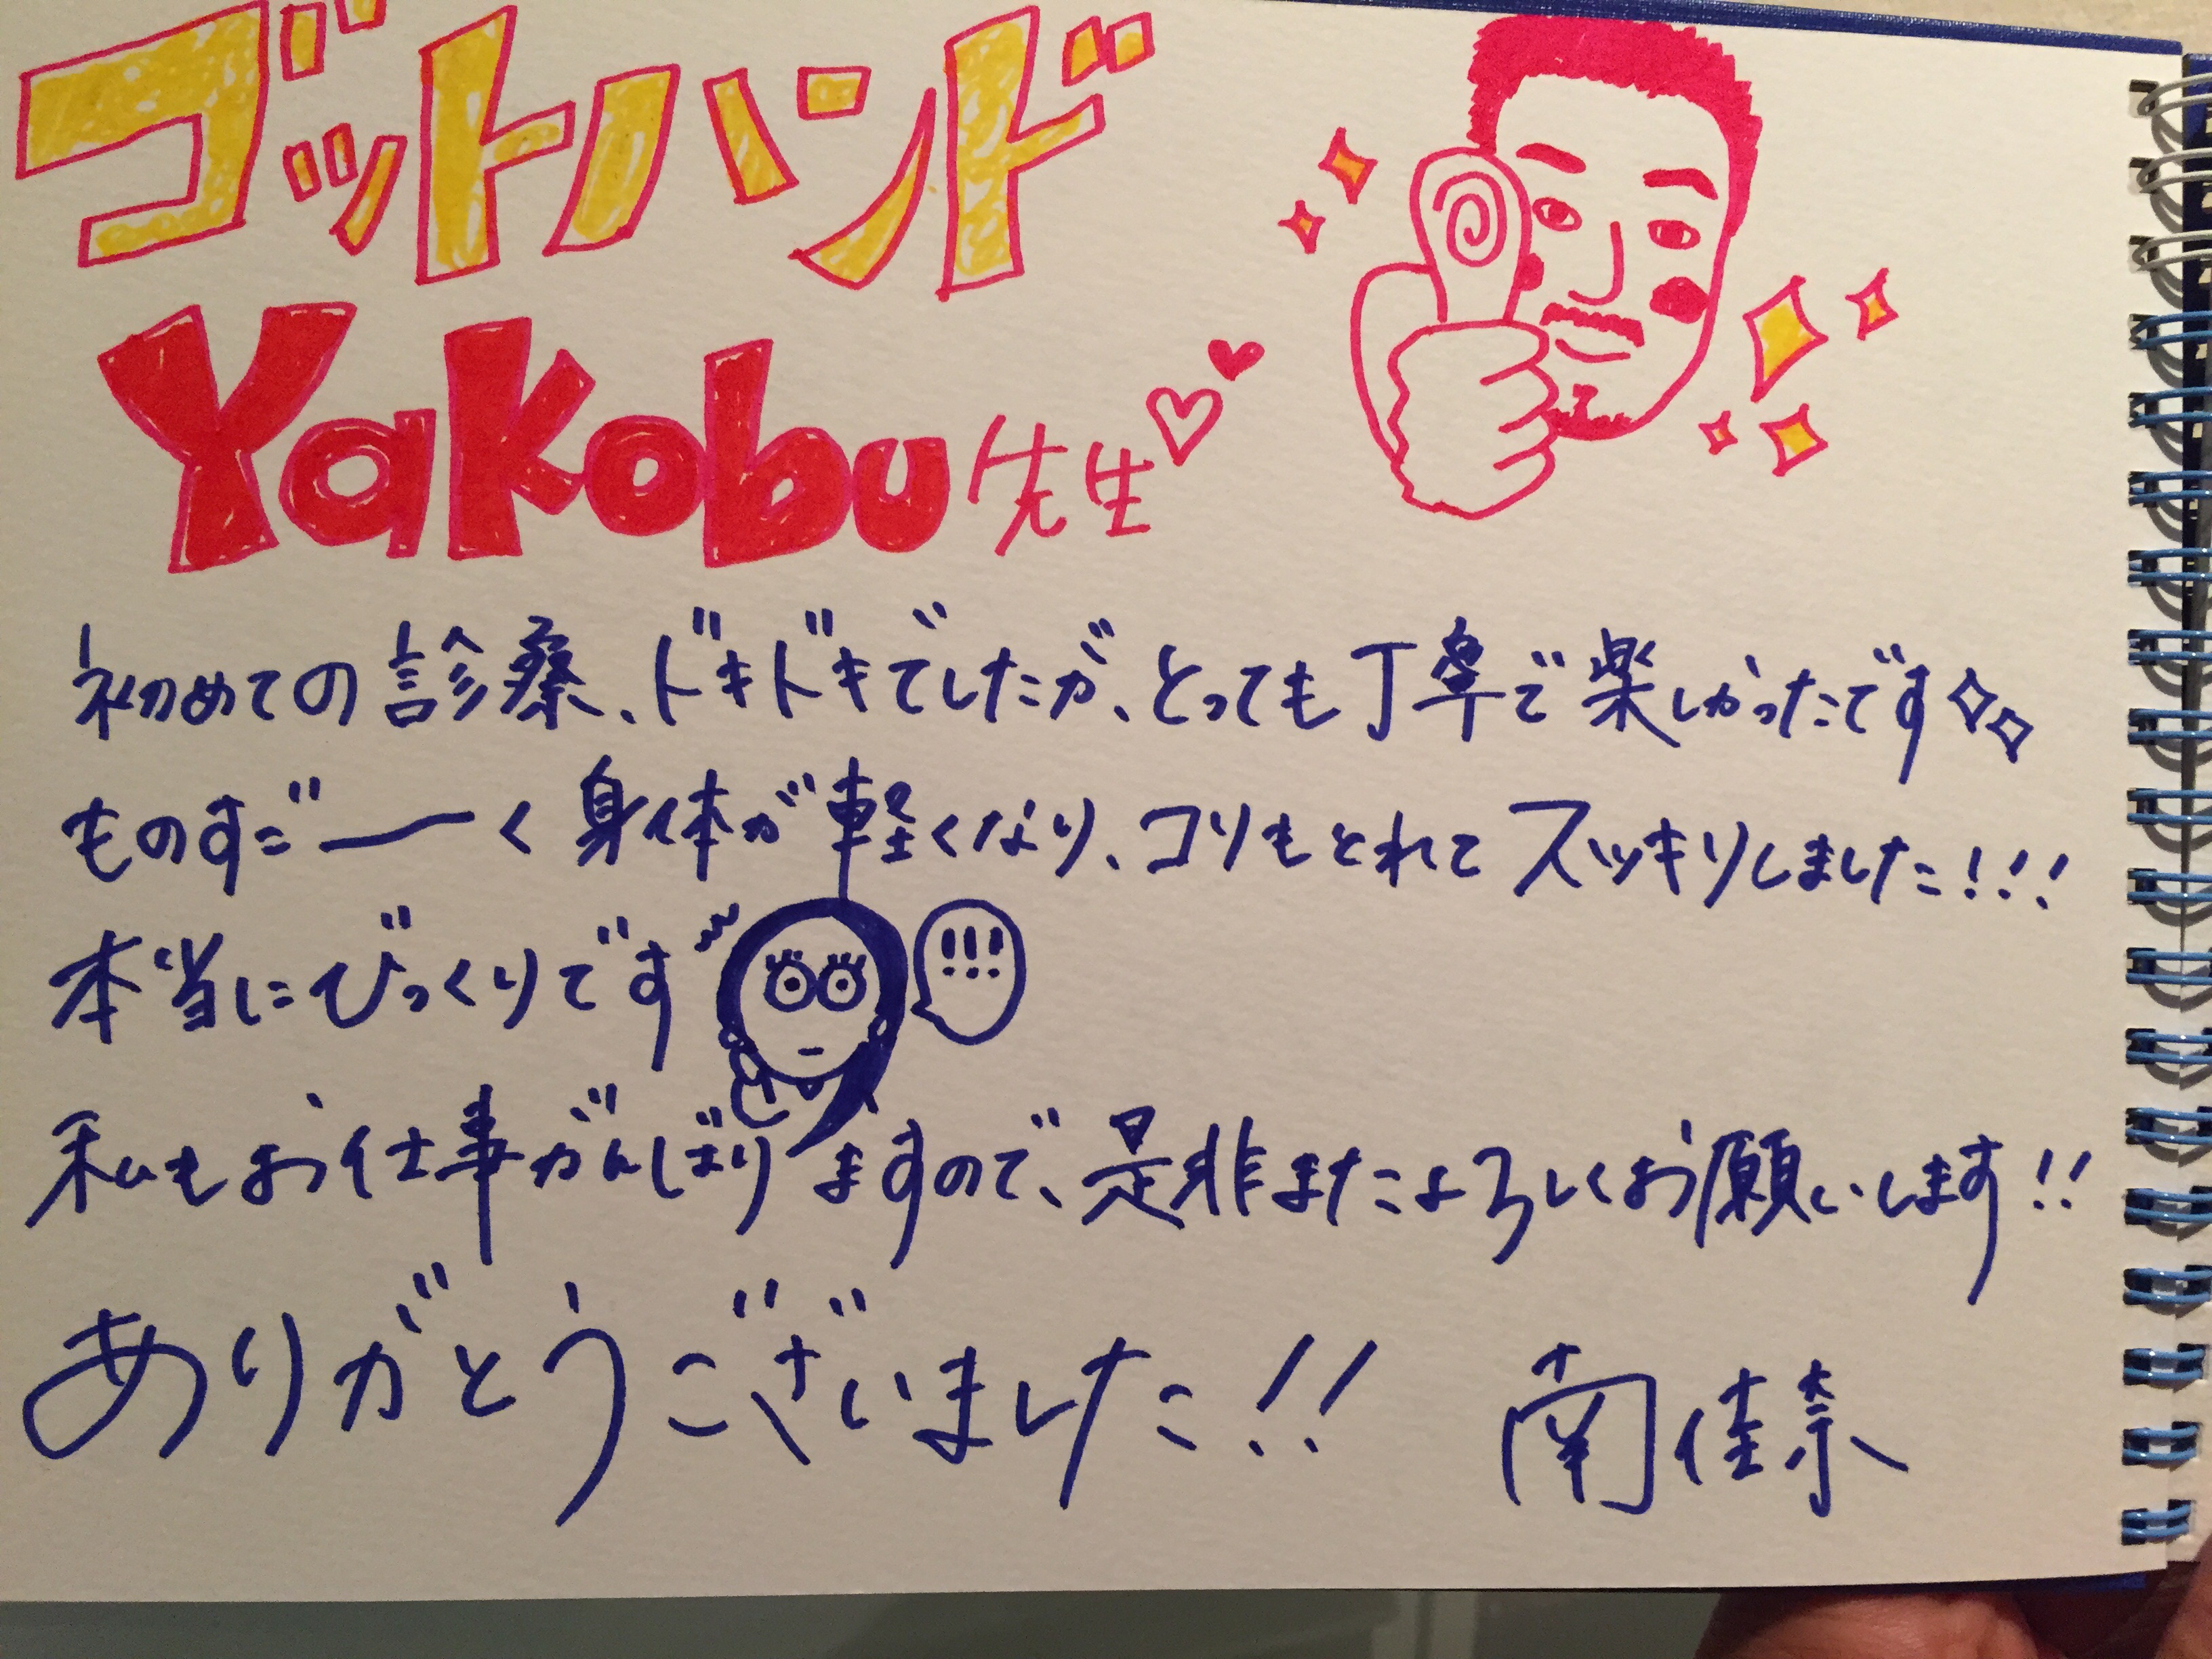 ゴットハンド
Yakobu先生♡♥
初めての診察、ドキドキでしたが、とっても丁寧で楽しかったです
ものすごーく身体が軽くなり、コリもとれてスッキリしました!!!
本当にびっくりです
!!!
私もお仕事がんばりますので、是非またよろしくお願いします!!
ありがとうございました!! 南佳奈